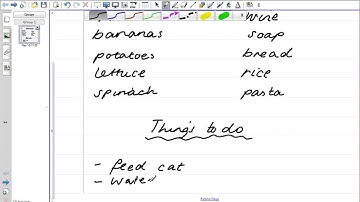 Groups
wine
bananas soap
potatoes bread
lettuce rice
spinach pasta
Things to do
- feed cat
- wate